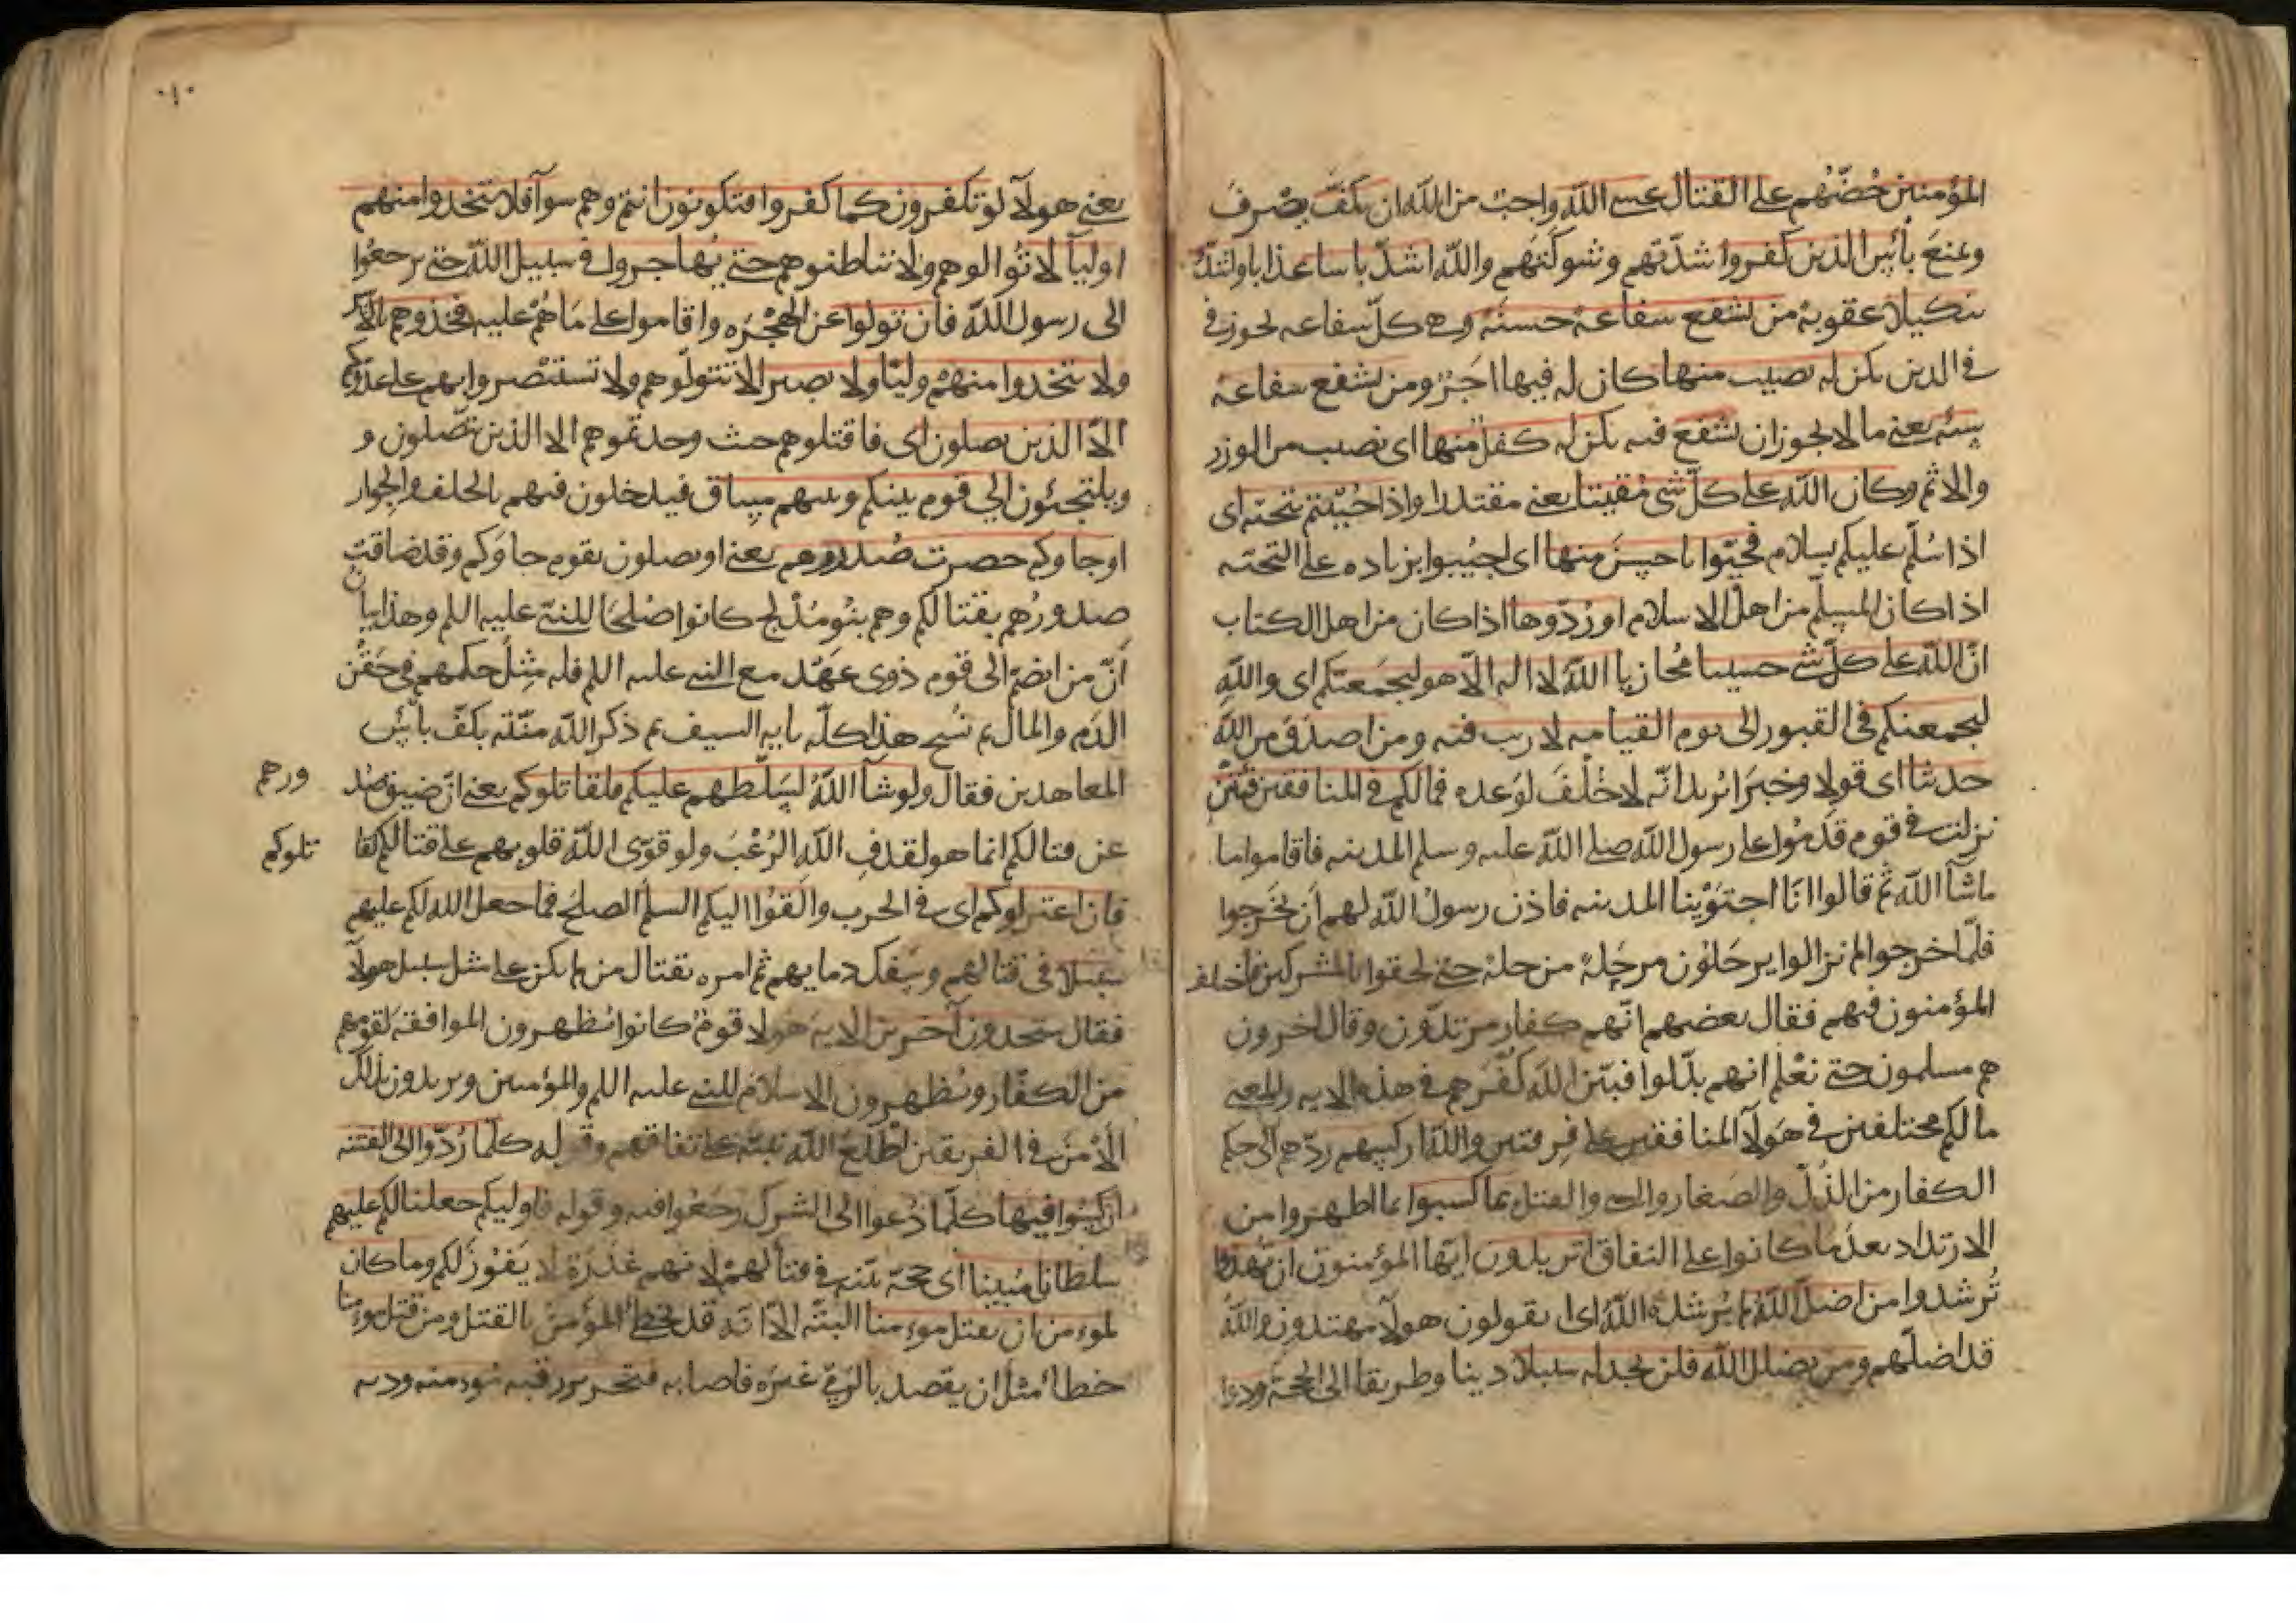 المؤمنين حُضّهم على القتال عسى الله واجب من الله ان يكفّ يصرف
ويمنع بأس الذين كفروا شدّتهم وشوكتهم والله اشدّ باسا عذابا واشدّ
تنكيلا عقوبة من يشفع شفاعة حسنة وهى كلّ شفاعه تجوز في
في الدين يكن له نصيب منها كان له فيها اجر ومن يشفع شفاعة
سيّئة يعنى ما لا يجوز ان يشفع فيه يكن له كفل منها اى نصيب من الوزر
والاثم وكان الله على كلّ شى مُقيتا يعنى مقتدرا واذا حُيّيتم بتحيّه اى
اذا سُلّم عليكم بسلام فحيّوا باحسن منها اى اجيبوا بزياده على التحيّه
اذا كان المسلّم من اهل الاسلام او رُدّوها اذا كان من اهل الكتاب
انّ الله على كلّ شى حسيبا مُجازيا الله لا اله الّا هو ليجمعنّكم اى والله
ليجمعنكم فى القبور الى يوم القيامه لا ريب فيه ومن اصدق من الله
حديثا اى قولا وخبرا يُريد انّه لا خُلْفَ لوَعده فما لكم فى المنافقين فئتين
نزلت فى قوم قدمُوا على رسول الله صلى الله عليه وسلم المدينه فاقاموا ما
ماشآ الله ثم قالوا انّا اجتوَيْنا المدينه فاذن رسولُ الله لهم ان يخرجوا
فلمّا خرجوا لم يزالوا يرحلُون مرحلة مرحلة حتى لحقوا بالمشركين فاختلف
المؤمنون فيهم فقال بعضهم انّهم كفار مرتدّون وقال اخرون
هم مسلمون حتى نعْلم انهم بدّلوا فبيّن الله كُفرَهم فى هذه الايه والمعنى
ما لكم مختلفين فى هَولآ المنافقين على فِرقتين والله اركسهم ردّهم الى حكم
الكفار من الذُلّ والصَغار والسبى والقتل بما كسبوا بما اظهروا من
الارتداد بعد ما كانوا على النفاق اتريدون ايّها المؤمنون ان تهدوا
تُرشدوا من اضلّ الله لم يُرشده الله اى يقولون هولآ مهتدون والله
قد اضلّهم ومن يضلل الله فلن تجد له سبيلا دينا وطريقا الى الحجّة ودوا
٠١٠
يعنى هولآ لو تكفرون كما كفروا فتكونون انتم وهم سوآ فلا تتخذوا منهم
اوليآ لا تُوالوهم ولا تباطنوهم حتى يُهاجروا فى سبيل الله حتى يرجعُوا
الى رسول الله فان تولوا عن الهجْرَه واقاموا على مَا هُمْ عليه فخذوهم بالاسر
ولا تتخذوا منهمْ وليّا ولا نصيرا لا تتولّوهم ولا تستنْصروا بهم على عدوّكم
الّا الذين يصلون اى فاقتلوهم حيث وجدتموهم الا الذين يتّصلون و
ويلتجئون الى قوم بينكم وبينهم ميثاق فيدخلون فيهم بالحلف والجوار
او جاوكم حصرت صُدورهم يعنى او يصلون بقوم جاوَكم وقد ضاقت
صدورُهم بقتالكم وهم بنُو مُدْلج كانوا صُلحًا للنبى عليه السلم وهذا بيان
أنّ من انضمّ الى قوم ذوى عَهْد مع النبى عليه السلم فله مثلُ حكمهم فى حَقْن
الدَم والمال ثم نُسخ هذا كلّه بايه السيف ثم ذكر الله منّته بكفّ بأس
المعاهدين فقال ولو شآ اللهُ لسَلّطهم عليكم فلقاتلوكم يعنى انّ ضيق صُد
ورهم
عن قتالكم انما هو لقذفِ الله الرُعْبَ ولو قوّى الله قلوبهم على قتالكم لقا
تلوكم
فان اعتزلوكم اى فى الحرب والقوْا اليكم السلم الصلح فما جعل الله لكم عليهم
سبيلا فى قتالهم وسَفك دمايهم ثم امره بقتال من لم يكن على مثل سبيل هولآ
فقال ستجدون آخرين الايه هولا قومٌ كانوا يُظهرون الموافقة لقومهم
من الكفّار ويُظهرون الاسلام للنبى عليه السلم والمؤمنين ويريدون بذلك
الأمْنَ فى الفريقين اطْلَعَ الله نبيّه على نفاقهم وقوله كلّما رُدّوا الى الفتنه
اركسُوا فيها كلّما دُعوا الى الشرك رجَعُوا فيه وقوله فاوليكم جعلنا لكم عليهم
سلطانا مُبينا اى حجّة بيّنه فى قتالهمْ لانهم غدَرة لا يَفوْن لكم وما كان
لموءمن ان يقتل موءمنا البتّه الّا انّه قد يخطى المؤمن بالقتل ومن قتل موءمنا
خطا مثل ان يقصد بالرَمْى غيرَه فاصابه فتحرير رقبه موءمنه وديه